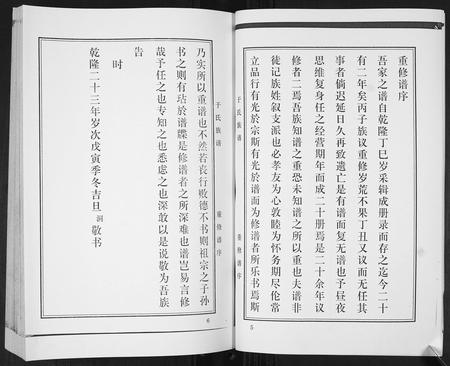 重修谱序
吾家之谱自乾隆丁巳岁采辑成册录而存之迄今二十
有二年矣丙子族议重修岁荒不果丁丑又议而无任其
事者倘迟延日久再致遗亡是有谱而复无谱也予昼夜
思维复身任之经营期年而成二十册焉是二十余年议
修者二焉吾族知谱之重恐未知谱之所以重也夫谱非
徒记族姓叙支派也必孝友为心敦睦为怀务期尽伦常
立品行有光於宗斯有光於谱而为修谱者所乐书焉斯
于氏族谱
重修谱序
5
乃实所以重谱也不然若丧行败德不书则祖宗之子孙
书之则有玷於谱牒是修谱者之所深难也谱岂易言修
哉予任之也专知之也悉虑之也深敢以是说敬为吾族
告
时
乾隆二十三年岁次戊寅季冬吉旦 洞 敬书
于氏族谱
重修谱序
6